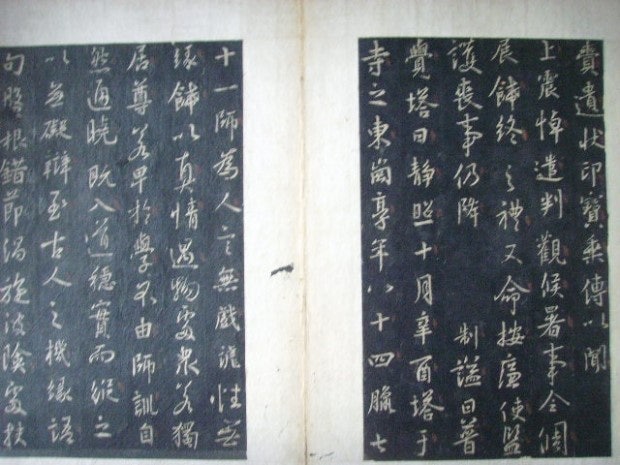 賫遺狀印寶乘傳以聞
上震悼遣判觀候署事令倜
展飾終之禮又命按廉使監
護喪事仍降 制諡曰普
覺塔曰靜照十月辛酉塔于
寺之東崗享年八十四臘七
十一師為人言無戲謔性無
緣飾以真情遇物處眾若獨
居尊若卑於學不由師訓自
然通曉既入道穩實而縱之
以無礙辯至古人之機緣語
句盤根錯節渦旋波險處抉